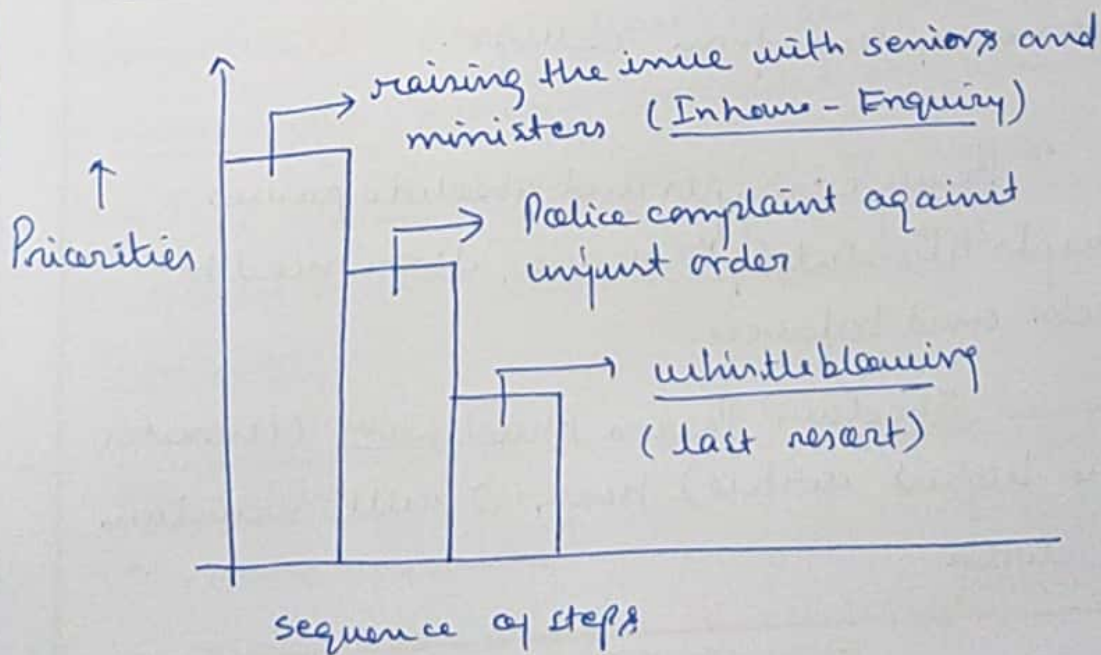 raising the issue with seniors and
ministers (Inhouse - Enquiry)
↑
Priorities
Police complaint against
unjust order
whistleblowing
(last resort)
sequence of steps